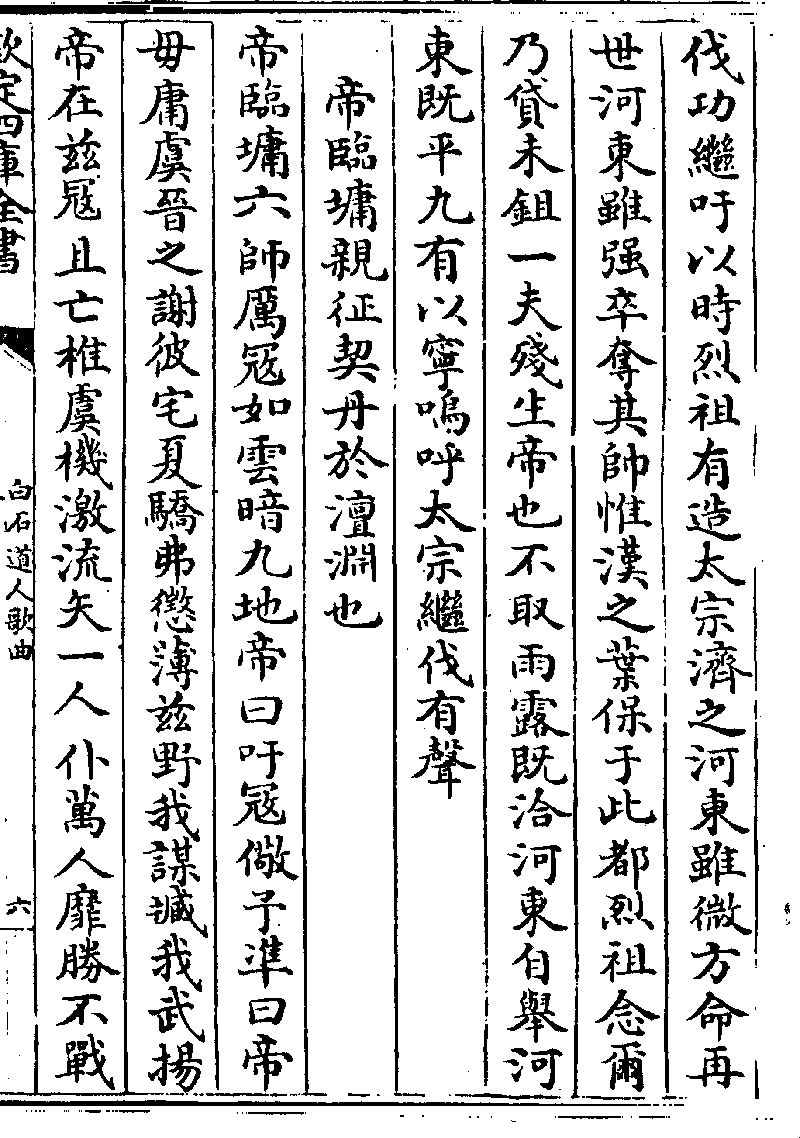 伐功繼吁以時烈祖有造太宗濟之河東雖微方命再
世河東雖强卒奪其帥惟漢之葉保于此都烈祖念爾
乃貸未鉏一夫殘生帝也不取雨露既洽河東自舉河
東既平九有以寧嗚呼太宗繼伐有聲
帝臨墉親征契丹於澶淵也
帝臨墉六師厲冦如雲暗九地帝曰吁冦儆予準曰帝
毋庸虞晉之謝彼宅夏驕弗懲薄兹野我謀臧我武揚
帝在兹冦且亡椎虞機激流矢一人仆萬人靡勝不戰
欽定四庫全書
白石道人歌曲
六